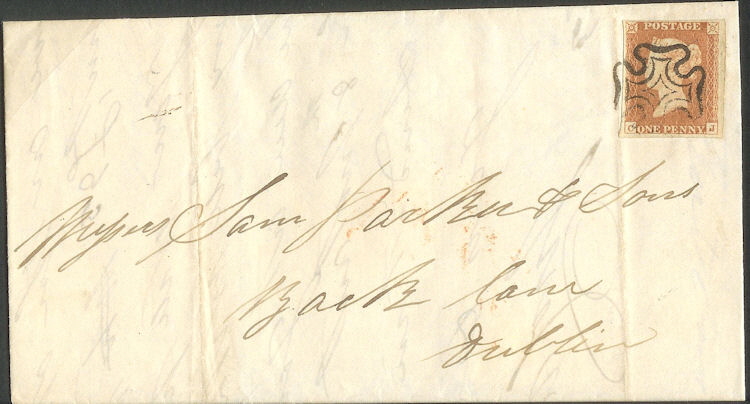 POSTAGE
C ONE PENNY J
Messrs Sam Parker & Sons
Back Lane
Dublin